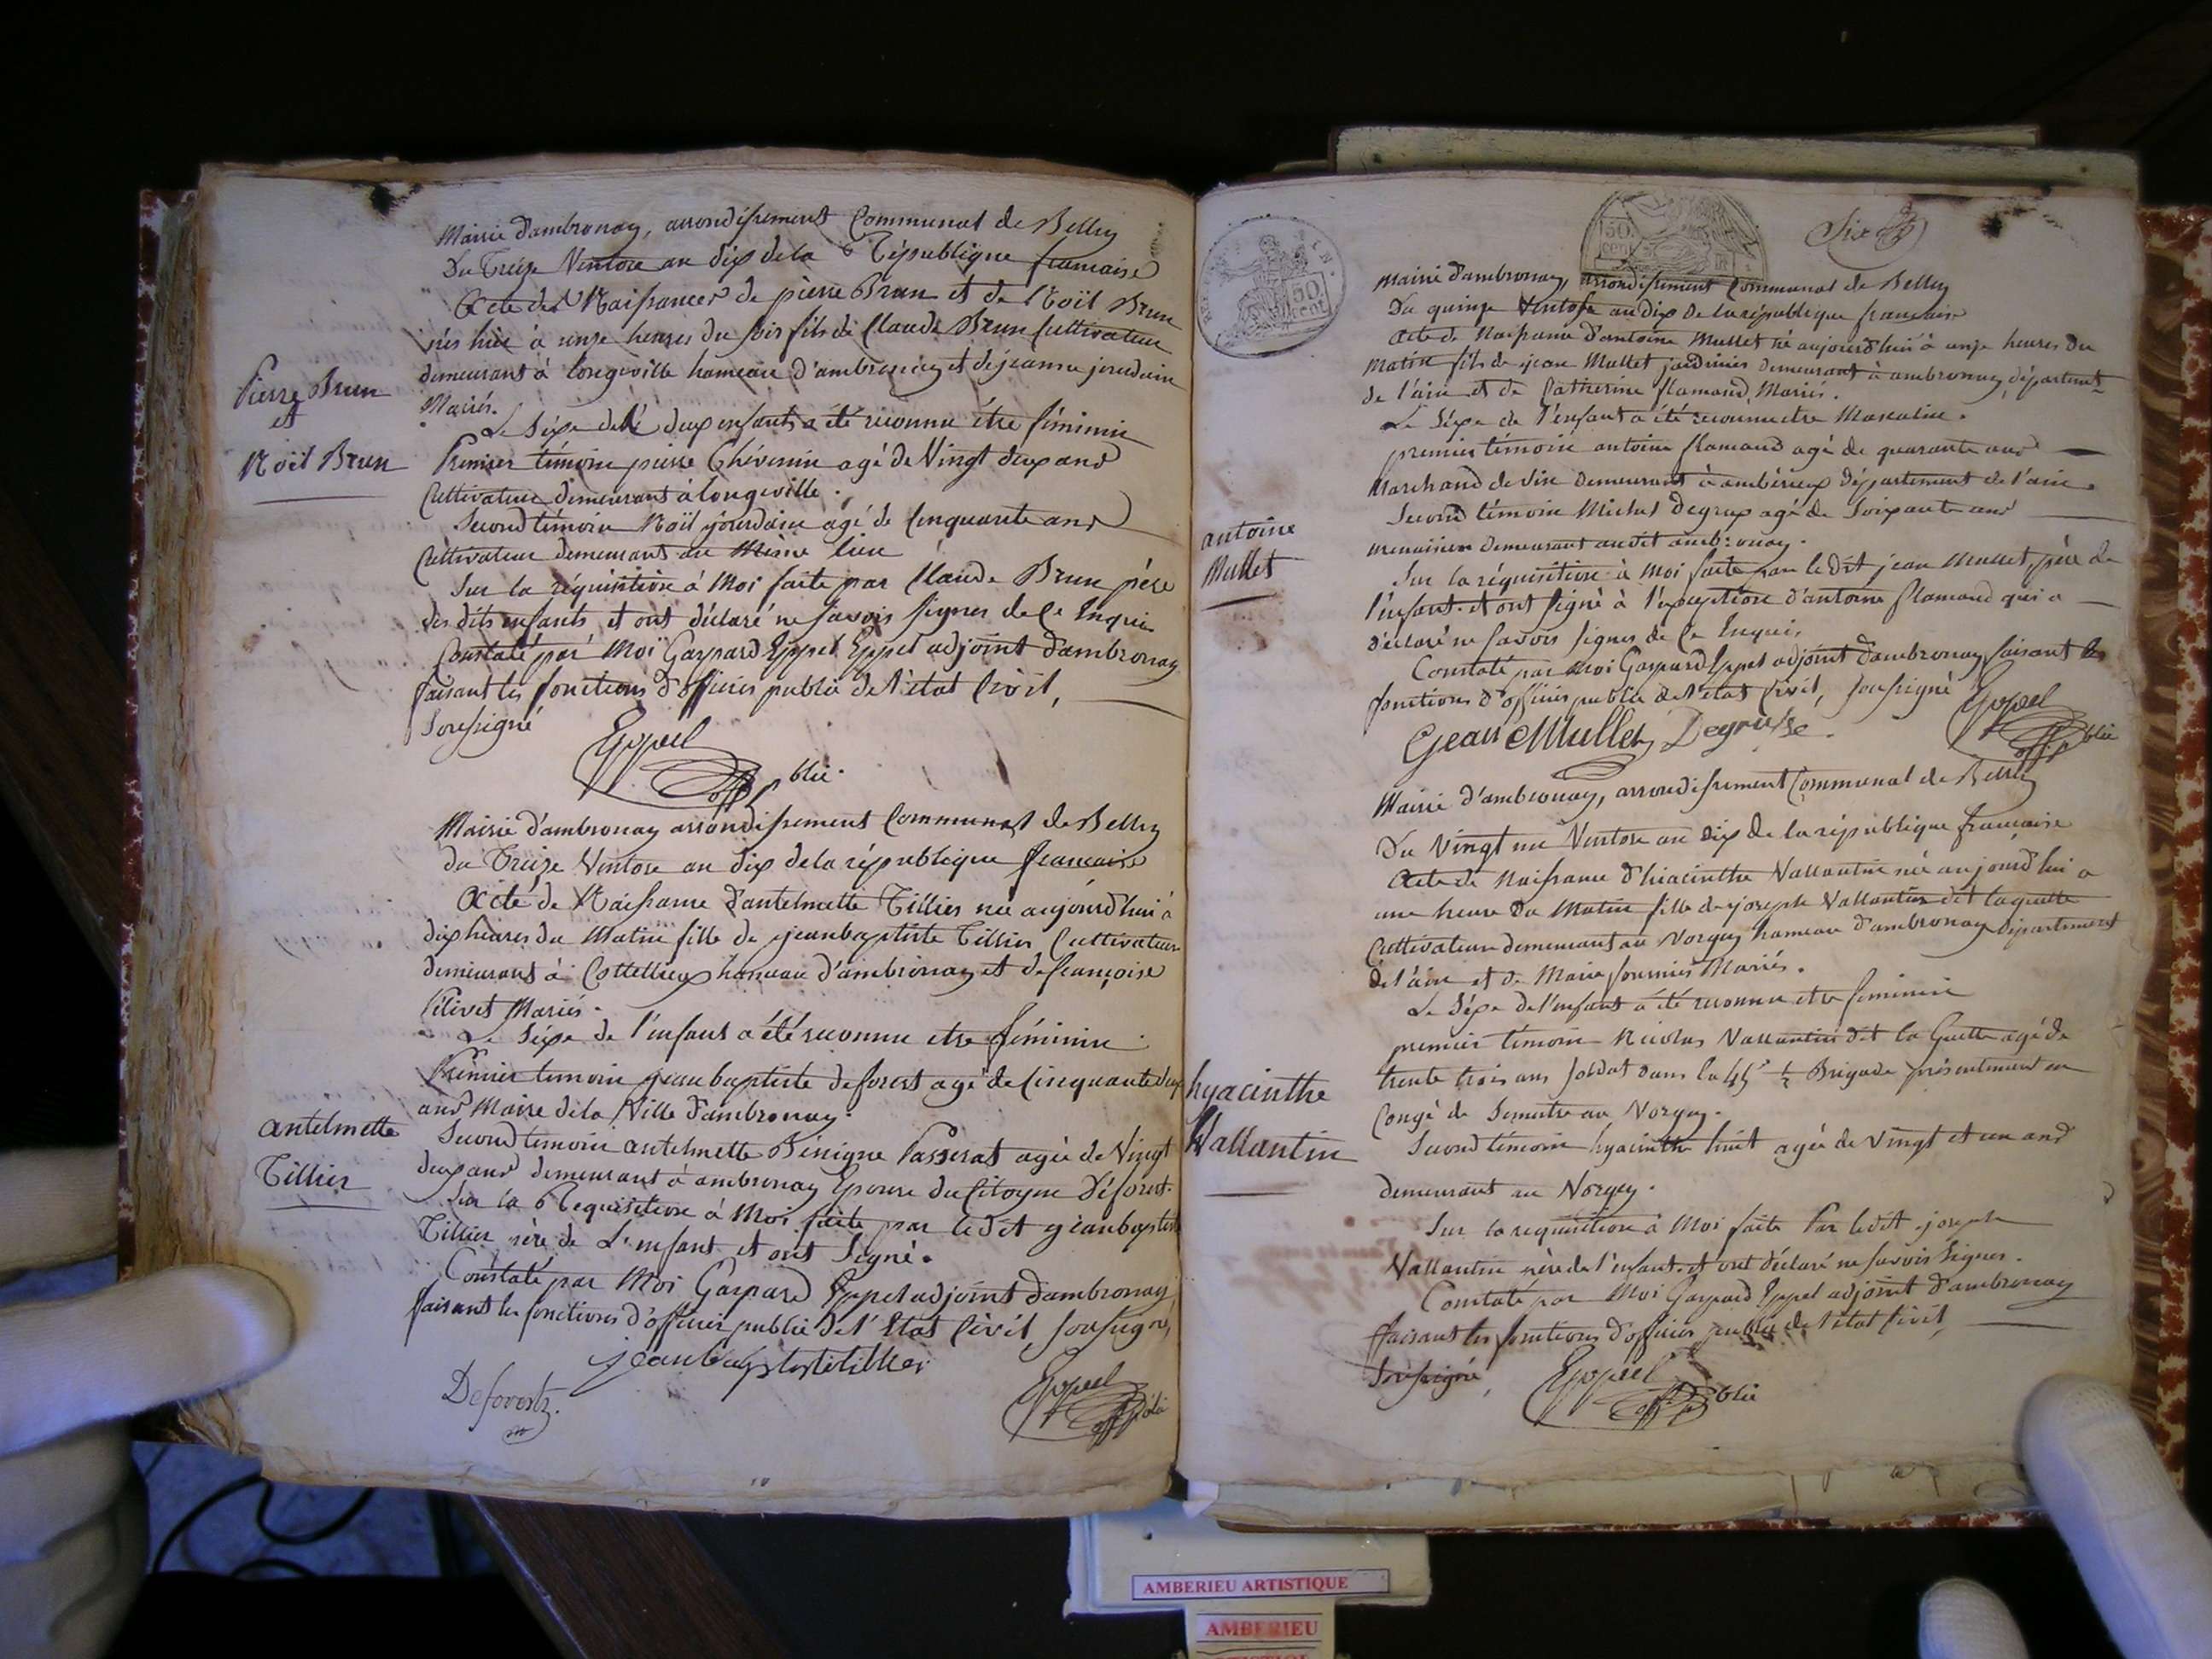 Mairie d'ambronay, arrondissement Communal de Belley
Du Treize Ventose an dix de la République francaise
Acte de Naissances de pierre Brun et de Noël Brun
nés hier à onze heures du soir fils de Claude Brun Cultivateur
demeurant à longeville hameau d'ambronay et de jeanne jourdain
Mariés.
Le Sexe des deux enfants a été reconnu être féminin
Pierre Brun
et
Noël Brun
Premier témoin pierre Chévenin agé de Vingt deux ans
Cultivateur demeurant à longeville.
Second témoin Noël jourdain agé de Cinquante ans
Cultivateur demeurant au Même lieu
Sur la réquisition à Moi faite par Claude Brun père
des dits enfants et ont déclaré ne savoir signer de Ce Enquis
Constaté par Moi Gaspard Eppel Eppel adjoint d'ambronay
faisant les fonctions d'officier public de l'état Civil,
Soussigné
Eppel
off. p blic.
Mairie d'ambronay arrondissement Communal de Belley
du Treize Ventose an dix de la république francaise
Acte de Naissance d'antelmette Tillier née aujourd'hui à
dix heures du Matin fille de jean baptiste Tillier Cultivateur
demeurant à Cottellieux hameau d'ambronay et de françoise
Mariés.
Le Sexe de l'enfant a été reconnu etre féminin.
Premier temoin jean baptiste deforest agé de Cinquante deux
ans Maire de la Ville d'ambronay.
antelmette
Tillier
Second temoin antelmette Bénigne Passerat agée de Vingt
deux ans demeurant à ambronay Epouse du Citoyen Déforest.
Sur la Requisition à Moi faite par le dit jean baptiste
Tillier père de L'enfant et ont Signé.
Constaté par Moi Gaspard Eppel adjoint d'ambronay
faisant les fonctions d'officier public de l'Etat Civil soussigné,
jean baptiste tillier
Deforest
Eppel
Six
50 cent
50 cent
Mairie d'ambronay, arrondissement Communal de Belley
Du quinze Ventose an dix de la république francaise
Acte de Naissance d'antoine Mullet né aujourd'hui à onze heures du
Matin fils de jean Mullet jardinier demeurant à ambronay, départemt
de l'ain et de Catherine flamand, Mariés.
Le Sexe de l'enfant a été reconnu etre Masculin.
premier témoin antoine flamand agé de quarante ans
Marchand de Vin demeurant à ambérieux département de l'ain.
Second témoin Michel Degrux agé de Soixante ans
menuisier demeurant au dit ambronay.
antoine
Mullet
Sur la réquisition à Moi faite par le dit jean Mullet, père de
l'enfant. et ont signé à l'exception d'antoine flamand qui a
déclaré ne savoir signer de Ce Enquis,
Constaté par Moi Gaspard Eppel adjoint d'ambronay faisant les
fonctions d'officier public de l'état Civil, soussigné
Eppel
Jean Mullet
off. p blic
Mairie d'ambronay, arrondissement Communal de Belley
Du Vingt un Ventose an dix de la république francaise
Acte de Naissance d'hiacinthe Vallantin née aujourd'hui a
une heure du Matin fille de joseph Vallantin dit laguette
Cultivateur demeurant au Vorgey hameau d'ambronay département
de l'ain et de Marie fournier Mariés.
Le Sexe de l'enfant a été reconnu etre feminin
premier témoin Nicolas Vallantin dit la Guette agé de
trente trois ans soldat dans la 45e ½ Brigade présentement en
Congé de Semestre au Vorgey.
hyacinthe
Vallantin
Second témoin hyacinthe huit agée de Vingt et un ans
demeurant au Vorgey.
Sur la requisition à Moi faite Par ledit joseph
Vallantin père de l'enfant. et ont déclaré ne savoir signer.
Constaté par Moi Gaspard Eppel adjoint d'ambronay
faisant les fonctions d'officier public de l'état Civil,
Soussigné,
Eppel
off. p blic
AMBERIEU ARTISTIQUE
AMBERIEU